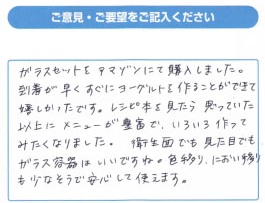 ご意見・ご要望をご記入ください
ガラスセットをアマゾンにて購入しました。
到着が早くすぐにヨーグルトを作ることができて
嬉しかったです。レシピ本を見たら思っていた
以上にメニューが豊富で、いろいろ作って
みたくなりました。衛生面でも見た目でも
ガラス容器はいいですね。色移り、におい移り
も少なそうで安心して使えます。